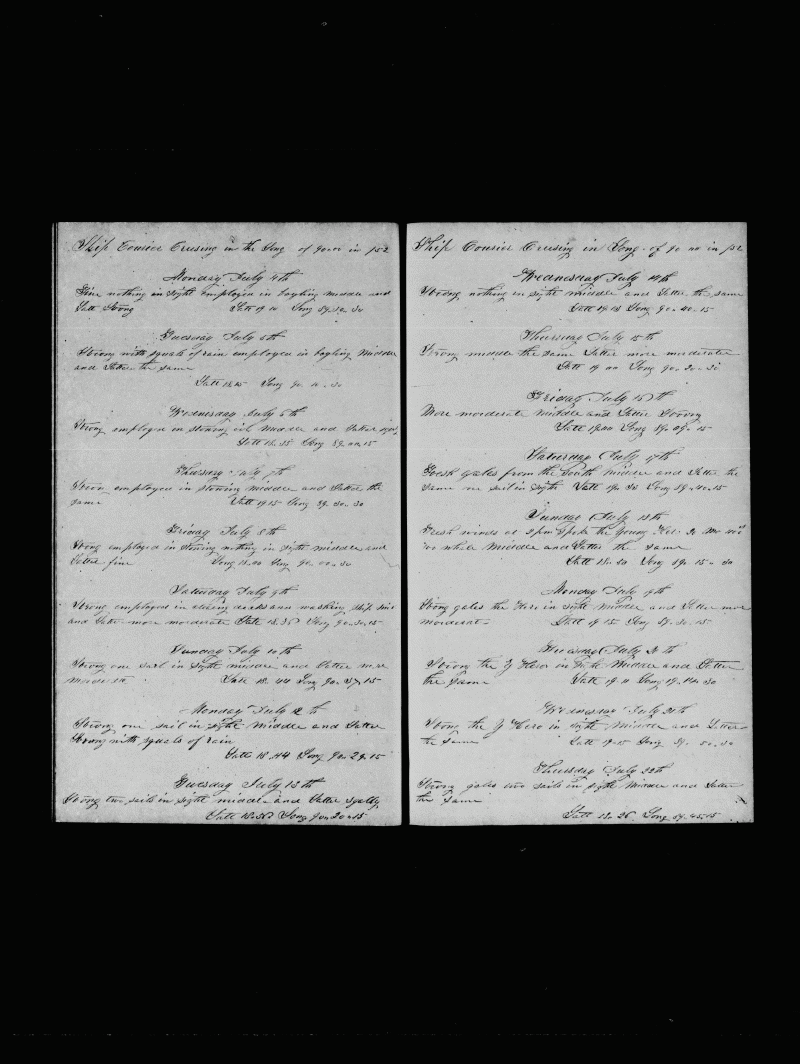 Ship Courier Crusing in the Long of 90.00 in 1852
Monday July 4th
Fine nothing in sight employed in boyling middle and
Latte Strong Latt 19 11 Long 89..30
Tuesday July 5th
Strong with squals of rain employed in boyling Middle
and Latter the same
Latt 18.15 Long 90 11.30
Wednesday July 6th
Strong employed in stowing oil Middle and Latter
Latt 18.35 Long 89.00.15
Thursday July 7th
Strong employed in stowing middle and Latter the
same Latt 19.15 Long 89.30.30
Friday July 8th
Strong employed in stowing nothing in sight middle and
Latter fine Long 18.00 Long 90.00.30
Saturday July 9th
Strong employed in clearing decks and washing ship
and Latter more moderate Latt 18.35 Long 90.30.15
Sunday July 10th
Strong one sail in sight middle and Latter more
moderate Latt 18.44 Long 90.37.15
Monday July 12th
Strong one sail in sight Middle and Latter
Strong with squals of rain
Latt 18.44 Long 90.29.15
Tuesday July 13th
Strong two sails in sight middle and Latter squally
Latt 18.50 Long 90.20.15
Ship Courier Crusing in Long of 90 00 in 1852
Wednesday July 14th
Strong nothing in sight middle and Latter the same
Latt 19.18 Long 90.40.15
Thursday July 15th
Strong middle the same Latter more moderate
Latt 19 00 Long 90.20.30
Friday July 15th
More moderate middle and Latter Strong
Latt 19.00 Long 89.09.15
Saturday July 17th
Fresh gales from the South Middle and Latter the
same one sail in sight Latt 19.30 Long 89.40.15
Sunday July 18th
Fresh winds at 3 pm Spoke the Young Hero
whale Middle and Latter the same
Latt 18.50 Long 89.15.30
Monday July 19th
Strong gales the Hero in sight middle and Latter more
moderate Latt 19 15 Long 89.30.15
Tuesday July 20th
Strong the Y Hero in sight Middle and Latter
the Same Latt 19.11 Long 19.40.30
Wednesday July 21th
Strong the Y Hero in sight Middle and Latter
the Same Latt 19.15 Long 89.50.30
Thursday July 22th
Strong gales two sails in sight Middle and Latter
the Same
Latt 18.26 Long 89.45.15